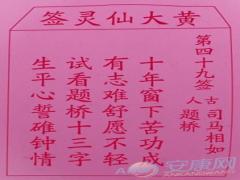 黄大仙灵签
第四十九签
古人 司马相如题桥
十年窗下苦功成
有志难舒愿不轻
试看题桥十三字
生平心誓碓钟情
安康网